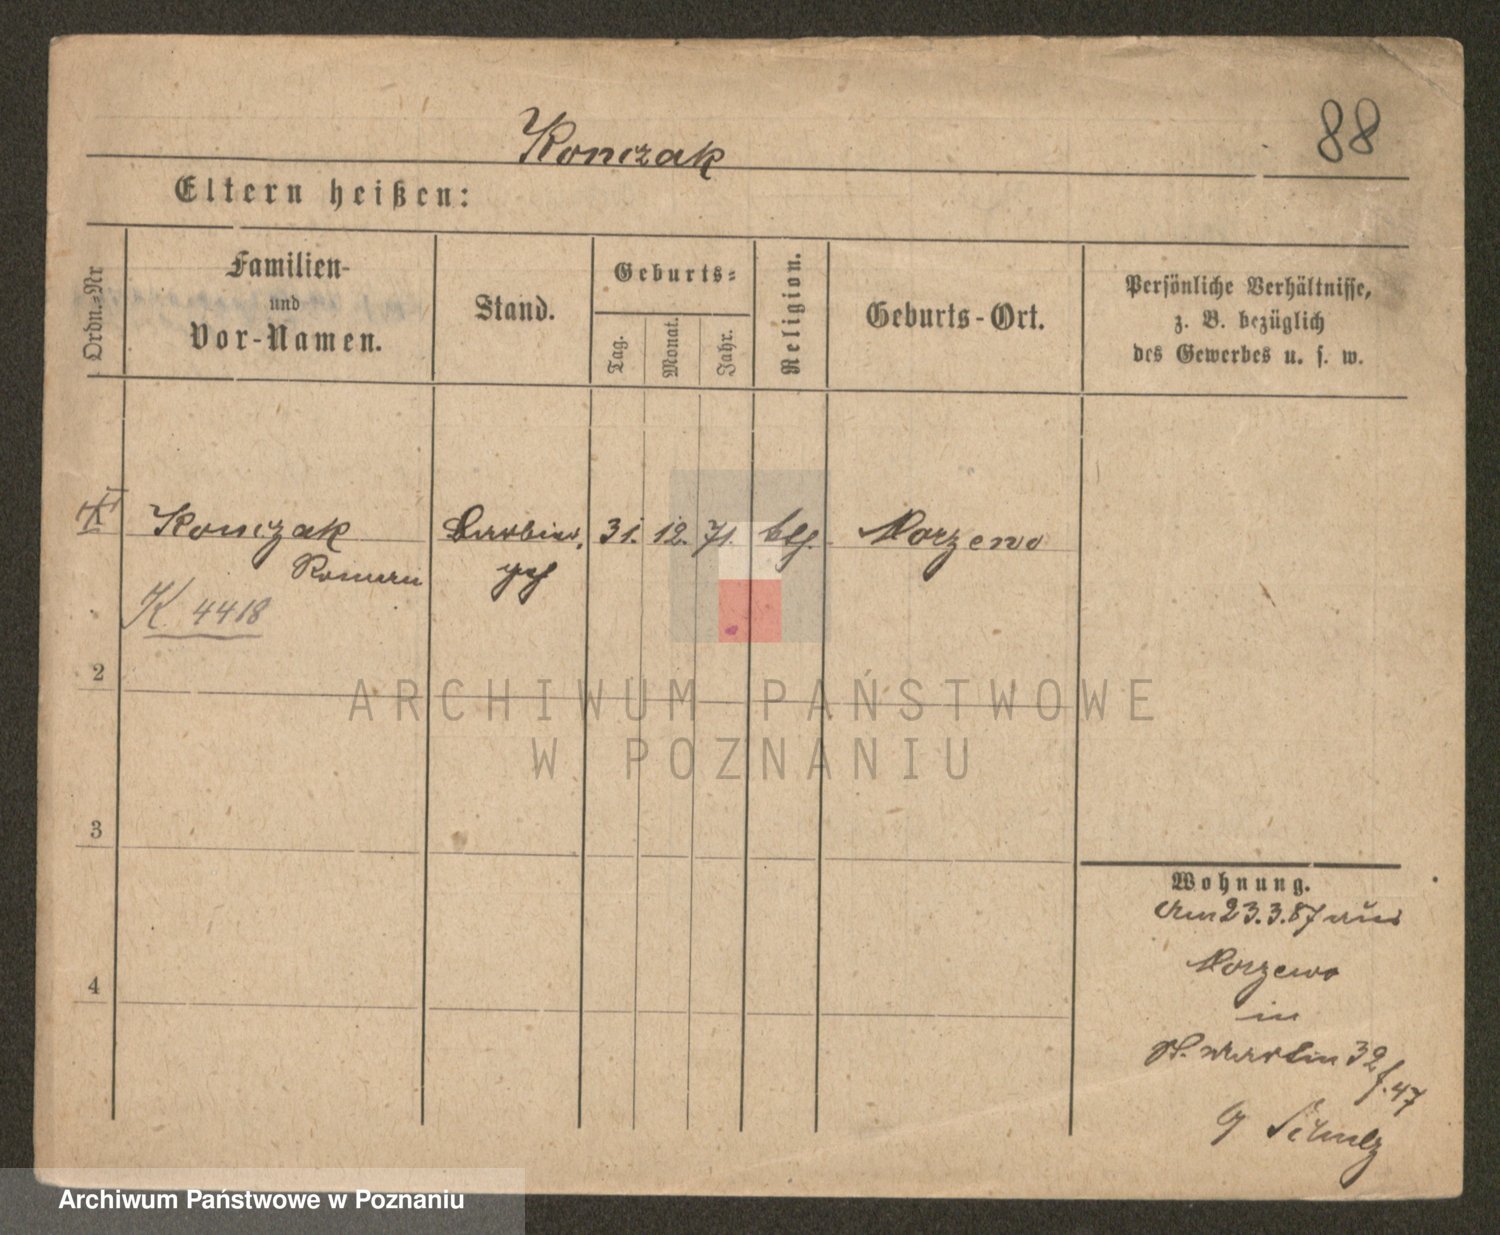 Konczak
88
Eltern heißen:
Ordn.-Nr
Familien-
und
Vor-Namen.
Stand.
Geburts-
Tag.
Monat.
Jahr.
Religion.
Geburts-Ort.
Persönliche Verhältnisse,
z. B. bezüglich
des Gewerbes u. s. w.
Konczak Barbier, 31. 12. 71. ktf. Morzewo
Roman
K 4418
2
3
4
Wohnung.
Am 23.3.87 aus
Morzewo
in
St. Martin 32
f. 47
ARCHIWUM PAŃSTWOWE
W POZNANIU
Archiwum Państwowe w Poznaniu